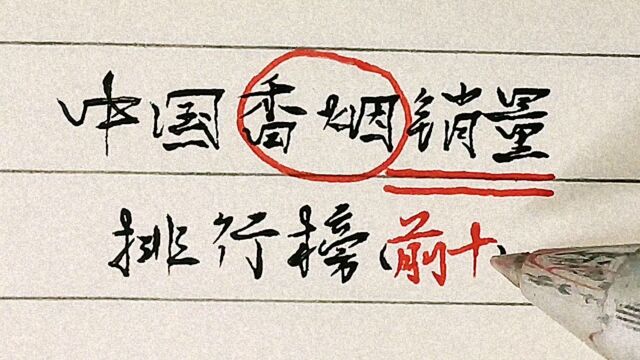 中国香烟销量
排行榜(前十)